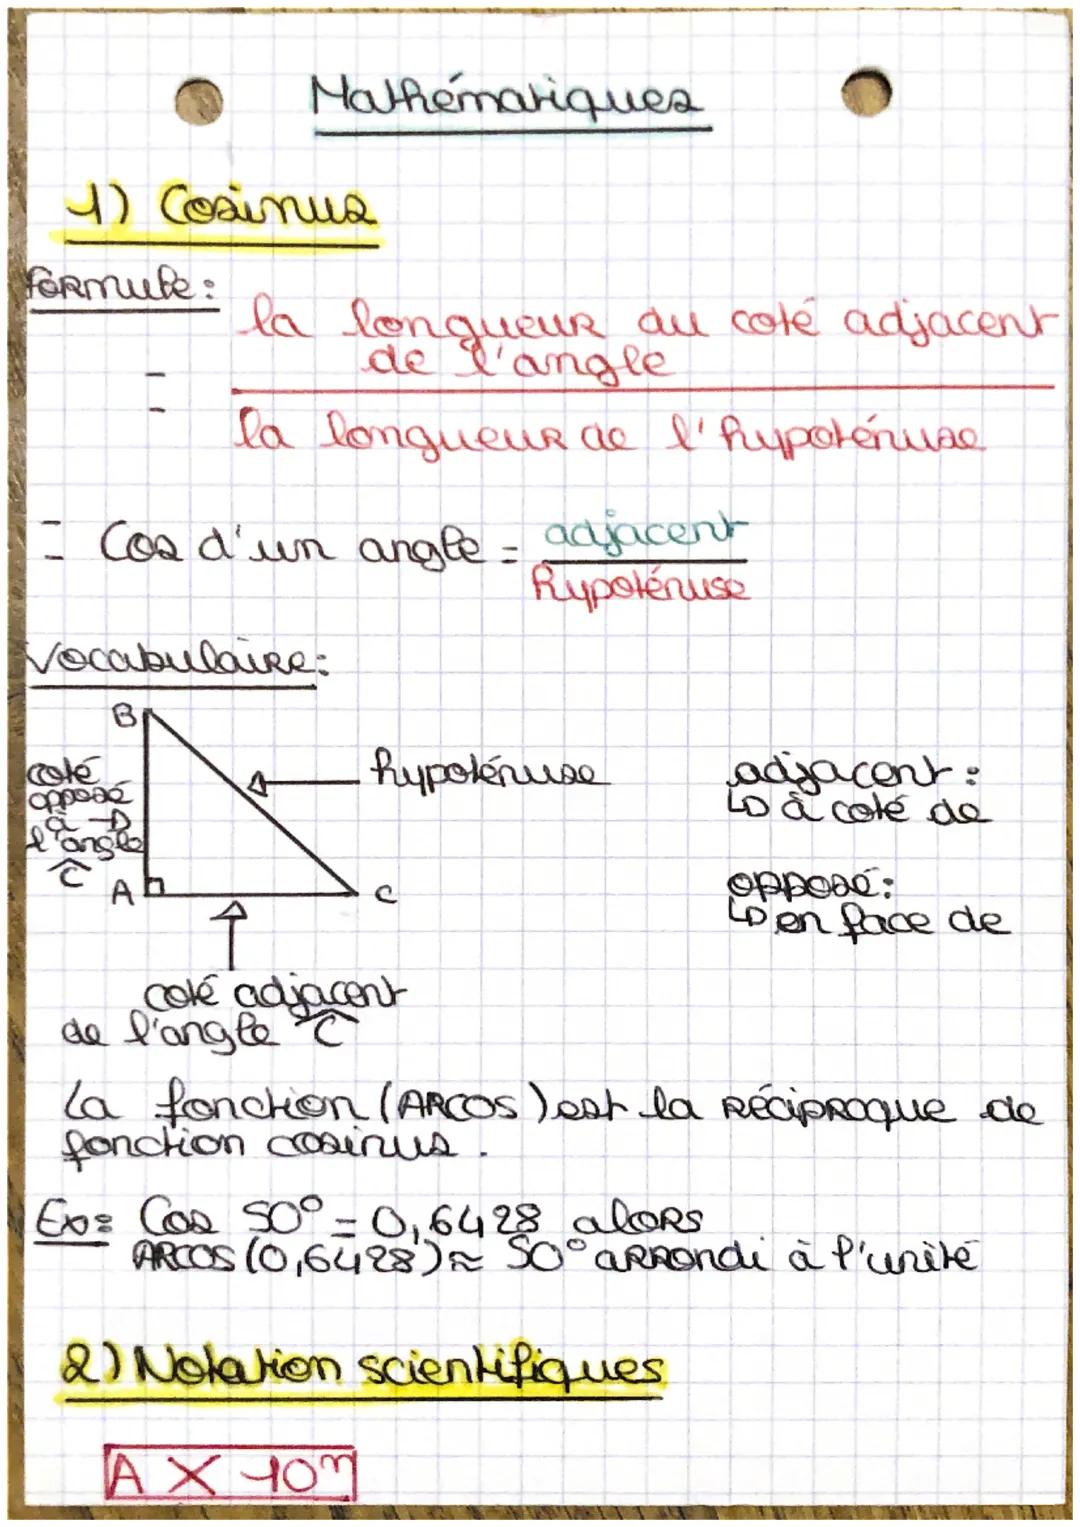 Mathématiques
1) Cosinus
Formule:
la longueur du coté adjacent
de l'angle
=
la longueur de l'hypoténuse
= Cos d'un angle = adjacent
hypoténuse
Vocabulaire:
B
coté
opposé
à
l'angle
Ĉ
A
C
hypoténuse
adjacent:
↳ à coté de
opposé:
↳ en face de
coté adjacent
de l'angle Ĉ
La fonction (ARCOS) est la réciproque de
fonction cosinus.
Ex: Cos 50° = 0,6428 alors
ARCOS (0,6428) ≈ 50° arrondi à l'unité
2) Notation scientifiques
A × 10ⁿ